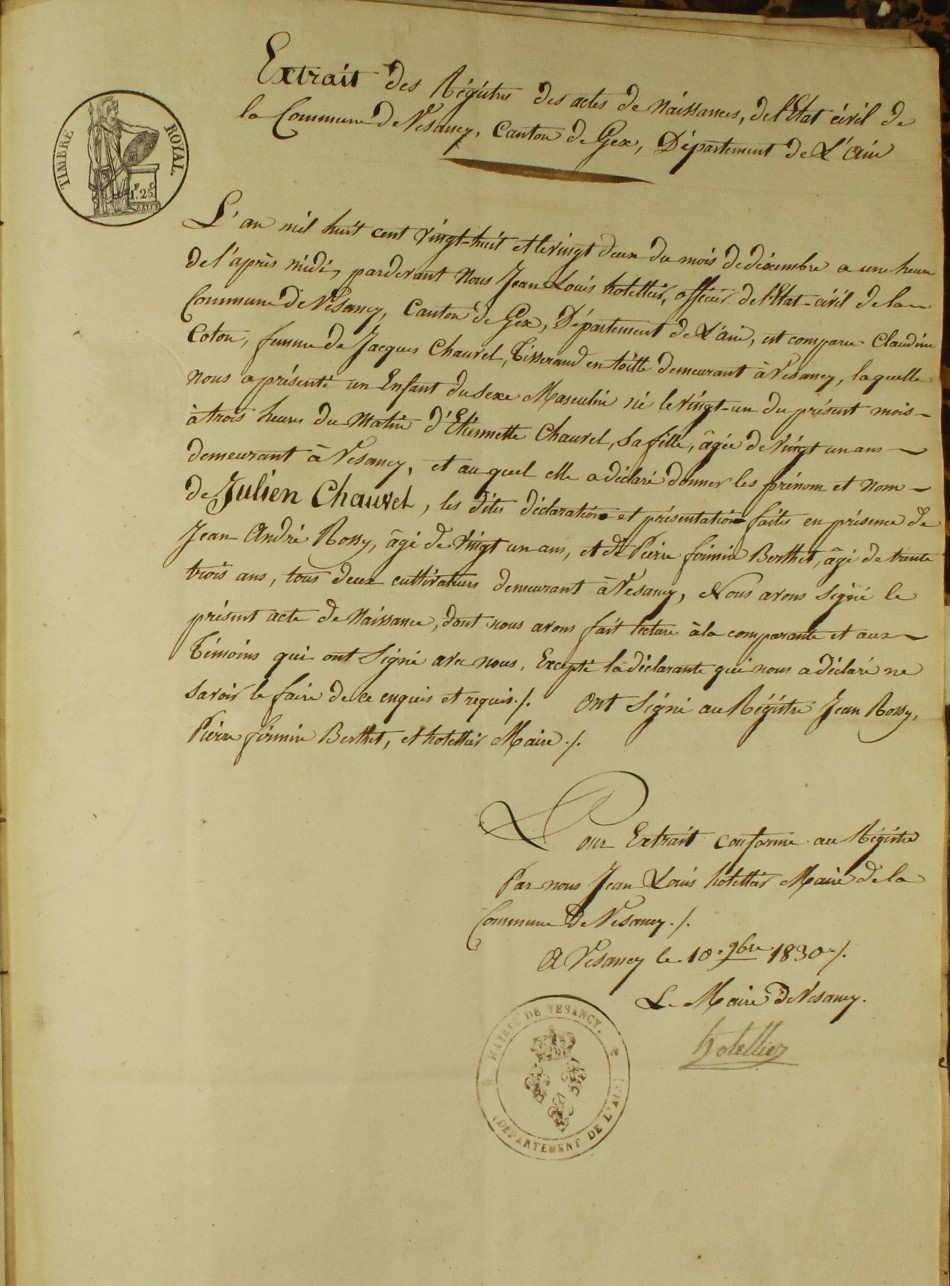 Extrait des Régistres des actes de Naissances, de l'Etat civil de
la Commune de Vesancy, Canton de Gex, Département de L'ain
TIMBRE ROYAL.
1 F. 25 C.
L'an mil huit cent vingt-huit et le vingt deux du mois de décembre a une heure
de l'après midi, pardevant Nous Jean Louis hotellier, officier de l'Etat-civil de la
Commune De Vésancy, Canton de Gex, Département de L'ain, est comparue Claudine
Coton, femme de Jacques Chauvet, Tisserand en toille demeurant à Vesancy, laquelle
nous a présenté un Enfant du sexe Masculin né le vingt-un du présent mois-
à trois heures du Matin d'Etiennette Chauvet, sa fille, âgée de vingt un ans
demeurant à Vesancy, et au quel elle a déclaré donner les prénom et nom
de Julien Chauvet, les dites déclaration et présentation faites en présence de
Jean André Rossy, âgé de vingt un ans, et de Pierre firmin Berthet, âgé de trente
trois ans, tous deux cultivateurs demeurant à Vesancy, Nous avons Signé le
présent acte de Naissance, dont nous avons fait lecture à la comparante et aux
Témoins qui ont Signé avec nous, Excepté la déclarante qui nous a déclaré ne
Savoir le faire de ce enquis et requis ./. Ont Signé au Régistre Jean Rossy,
Pierre firmin Berthet, et hotellier Maire ./.
Pour Extrait conforme au Régistre
Par nous Jean Louis hotellier Maire de la
Commune De Vesancy ./.
A Vesancy le 10 9bre 1830 ./.
Le Maire De Vesancy.
hotellier
MAIRIE DE VESANCY.
(DÉPARTEMENT DE L'AIN)